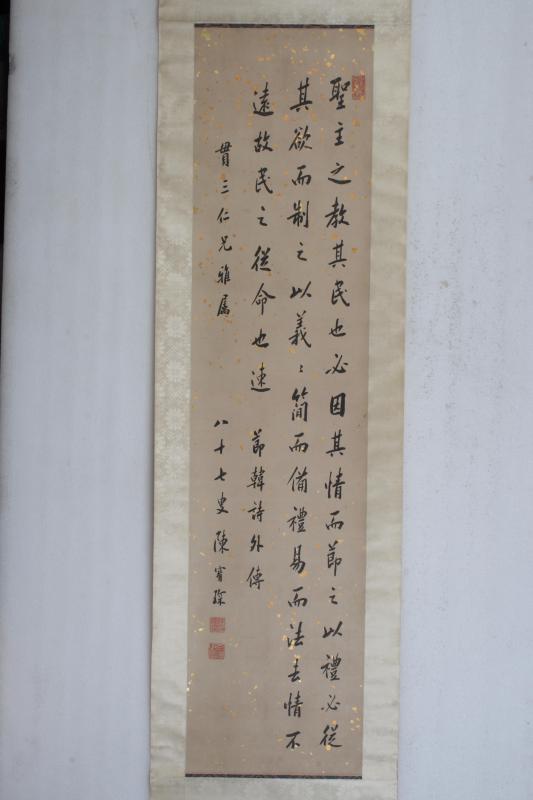 聖主之教其民也必因其情而節之以禮必從
其欲而制之以義〻簡而備禮易而法去情不
遠故民之從命也速　節韓詩外傳
貫三仁兄雅屬　八十七叟陳寶琛